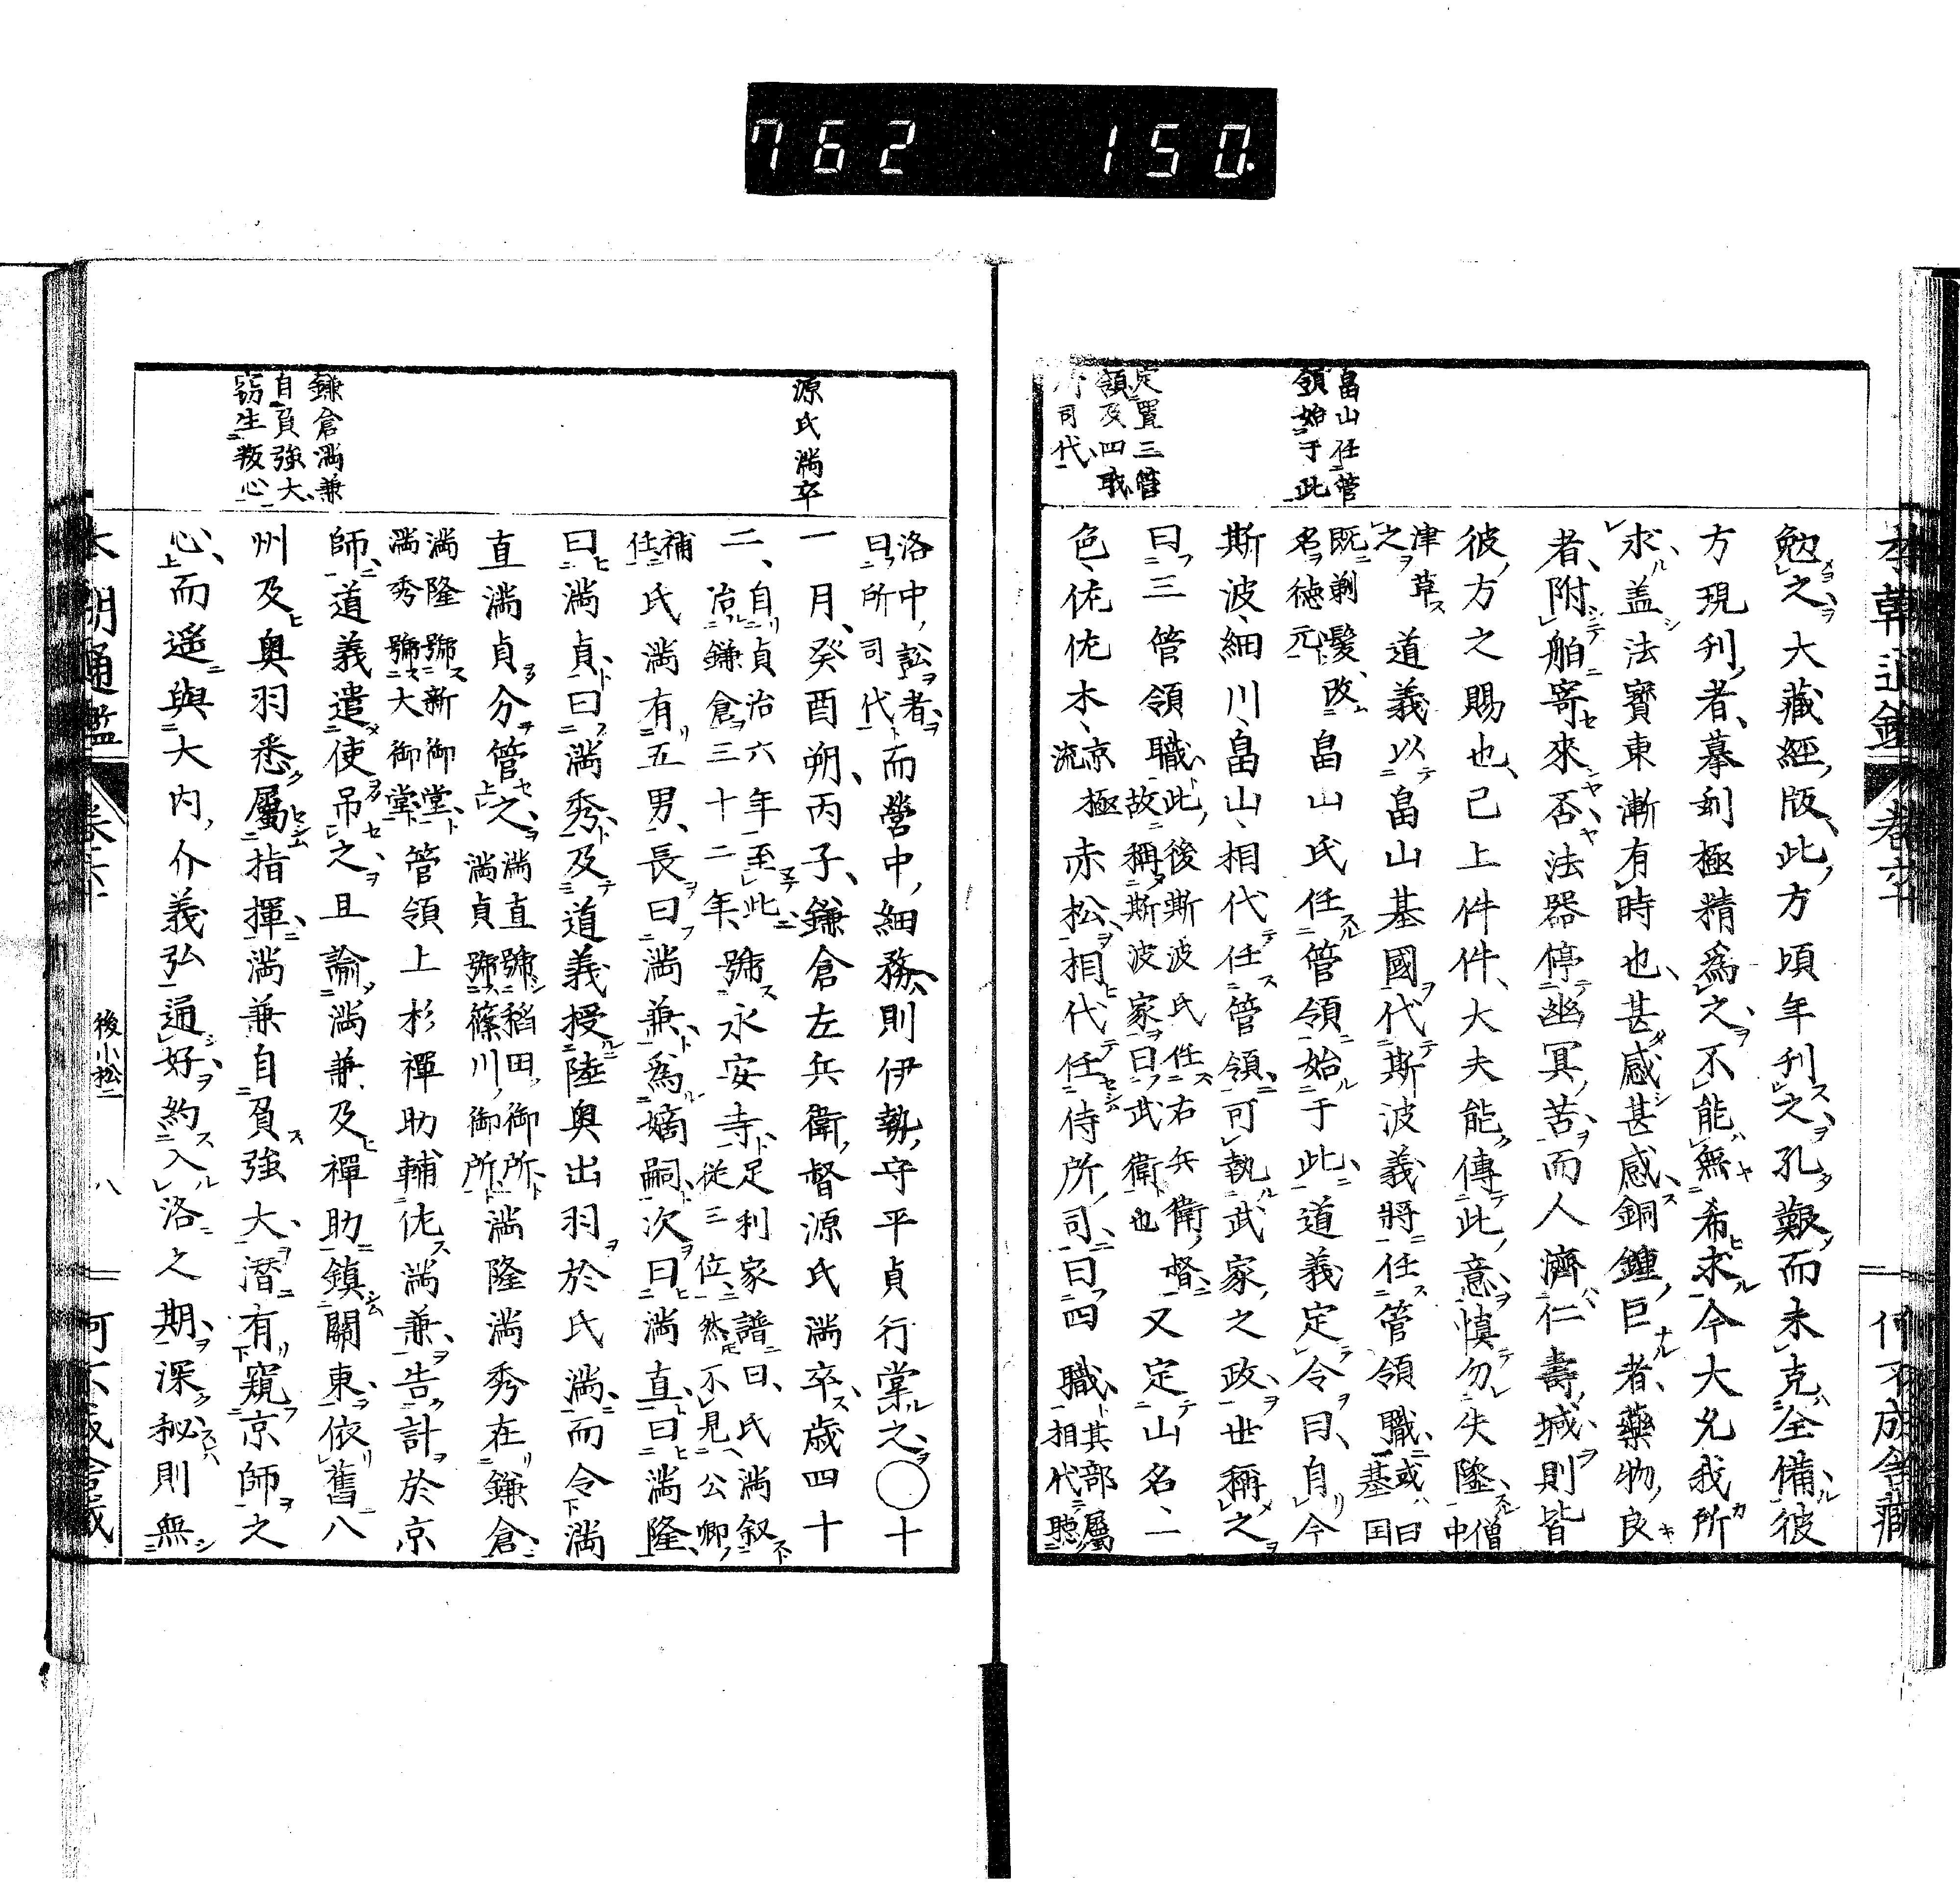 762 150.
畠山任管
領始于此
定置三管
領及四職
所司代
勉之大藏經版此方頃年刊之孔艱而未克全備彼
方現刊者摹刻極精爲之不能無希求今大允我所
求盖法寶東漸有時也甚感甚感銅鍾巨者藥物良
者附舶寄來否法器停幽冥苦而人濟仁壽域則皆
彼方之賜也已上件件大夫能傳此意愼勿失墜僧中
津草
之
道義以畠山基國代斯波義將任管領職或曰基国
既剃髮改
名德元
畠山氏任管領始于此道義定令曰自今
斯波細川畠山相代任管領可執武家之政世稱之
曰三管領職此後斯波氏任右兵衛督
故稱斯波家曰武衛也
又定山名一
色佐佐木京極
流
赤松相代任侍所司曰四職其部屬
相代聽
本朝通鑑
卷六十
後小松二
八
何不成舍藏
源氏滿卒
鎌倉滿兼
自負強大
窃生叛心
洛中訟者
曰所司代
而營中細務則伊勢守平貞行掌之○十
一月癸酉朔丙子鎌倉左兵衛督源氏滿卒歲四十
二自貞治六年至此
治鎌倉三十二年
號永安寺足利家譜曰氏滿叙
從三位然不見公卿
補
任
氏滿有五男長曰滿兼爲嫡嗣次曰滿直曰滿隆
曰滿貞曰滿秀及道義授陸奧出羽於氏滿而令滿
直滿貞分管之滿直號稻田御所
滿貞號篠川御所
滿隆滿秀在鎌倉
滿隆號新御堂
滿秀號大御堂
管領上杉禪助輔佐滿兼告計於京
師道義遣使吊之且諭滿兼及禪助鎭關東依舊八
州及奧羽悉屬指揮滿兼自負強大潛有窺京師之
心而遥與大内介義弘通好約入洛之期深秘則無